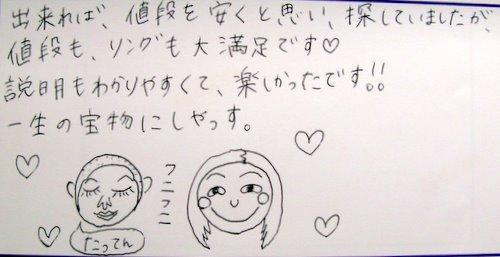 出来れば、値段を安くと思い、探していましたが、
値段も、リングも大満足です♡
説明もわかりやすくて、楽しかったです!!
一生の宝物にしやっす。
ニコニコ